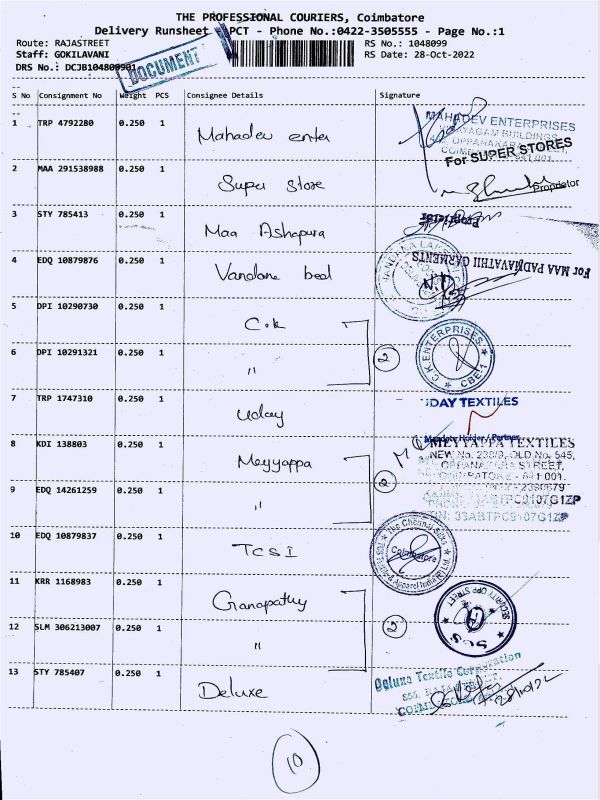 THE PROFESSIONAL COURIERS, Coimbatore
Delivery Runsheet - PCT - Phone No.:0422-3505555 - Page No.:1
Route: RAJASTREET RS No.: 1048099
Staff: GOKILAVANI RS Date: 28-Oct-2022
DRS No.: DCJB104809901
DOCUMENT
S No Consignment No Weight PCS Consignee Details Signature
1 TRP 4792280 0.250 1 Mahadev enter
MAHADEV ENTERPRISES
For SUPER STORES
2 MAA 291538988 0.250 1 Super Store
Proprietor
3 STY 785413 0.250 1 Maa Ashapura
Proprietor
For MAA PADMAVATHII GARMENTS
4 EDQ 10879876 0.250 1
5 DPI 10290730 0.250 1 C.k
C.K ENTERPRISES
CBE-1
6 DPI 10291321 0.250 1 " 2
7 TRP 1747310 0.250 1 Uday
UDAY TEXTILES
8 KDI 138803 0.250 1 Meyyappa
MEYYAPPA TEXTILES
NEW No. 238/3, OLD No. 545,
OPPANAKARA STREET,
COIMBATORE - 641 001.
9 EDQ 14261259 0.250 1 " 2
33ABTPC9107G1ZP
10 EDQ 10879837 0.250 1 TCSI
The Chennai Silks
Coimbatore
11 KRR 1168983 0.250 1 Ganapathy
SCS
12 SLM 306213007 0.250 1 " 2
13 STY 785407 0.250 1 Deluxe
Deluxe Textile Corporation
28/10/22
10